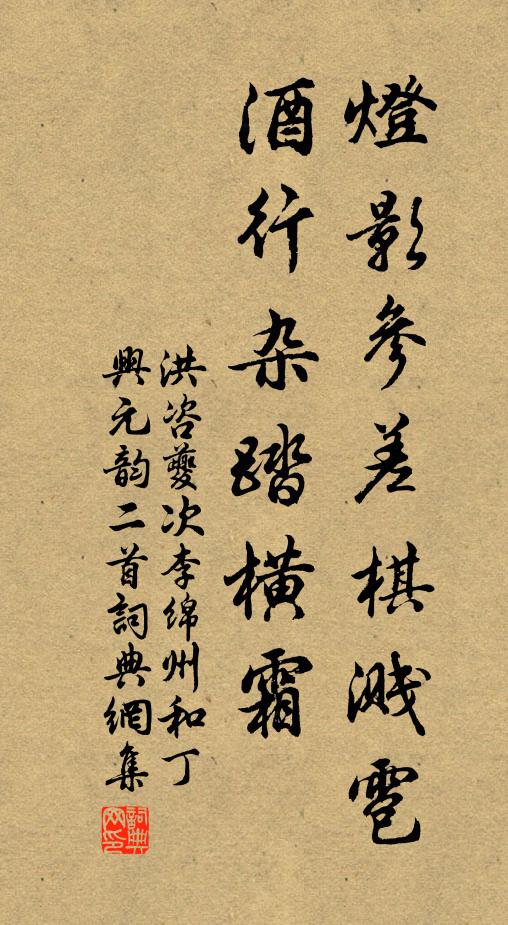 燈影參差棋濺雹
酒行杂踏橫霜
洪咨夔次李绵州和丁
興元韵二首詞典網集
詞典网印